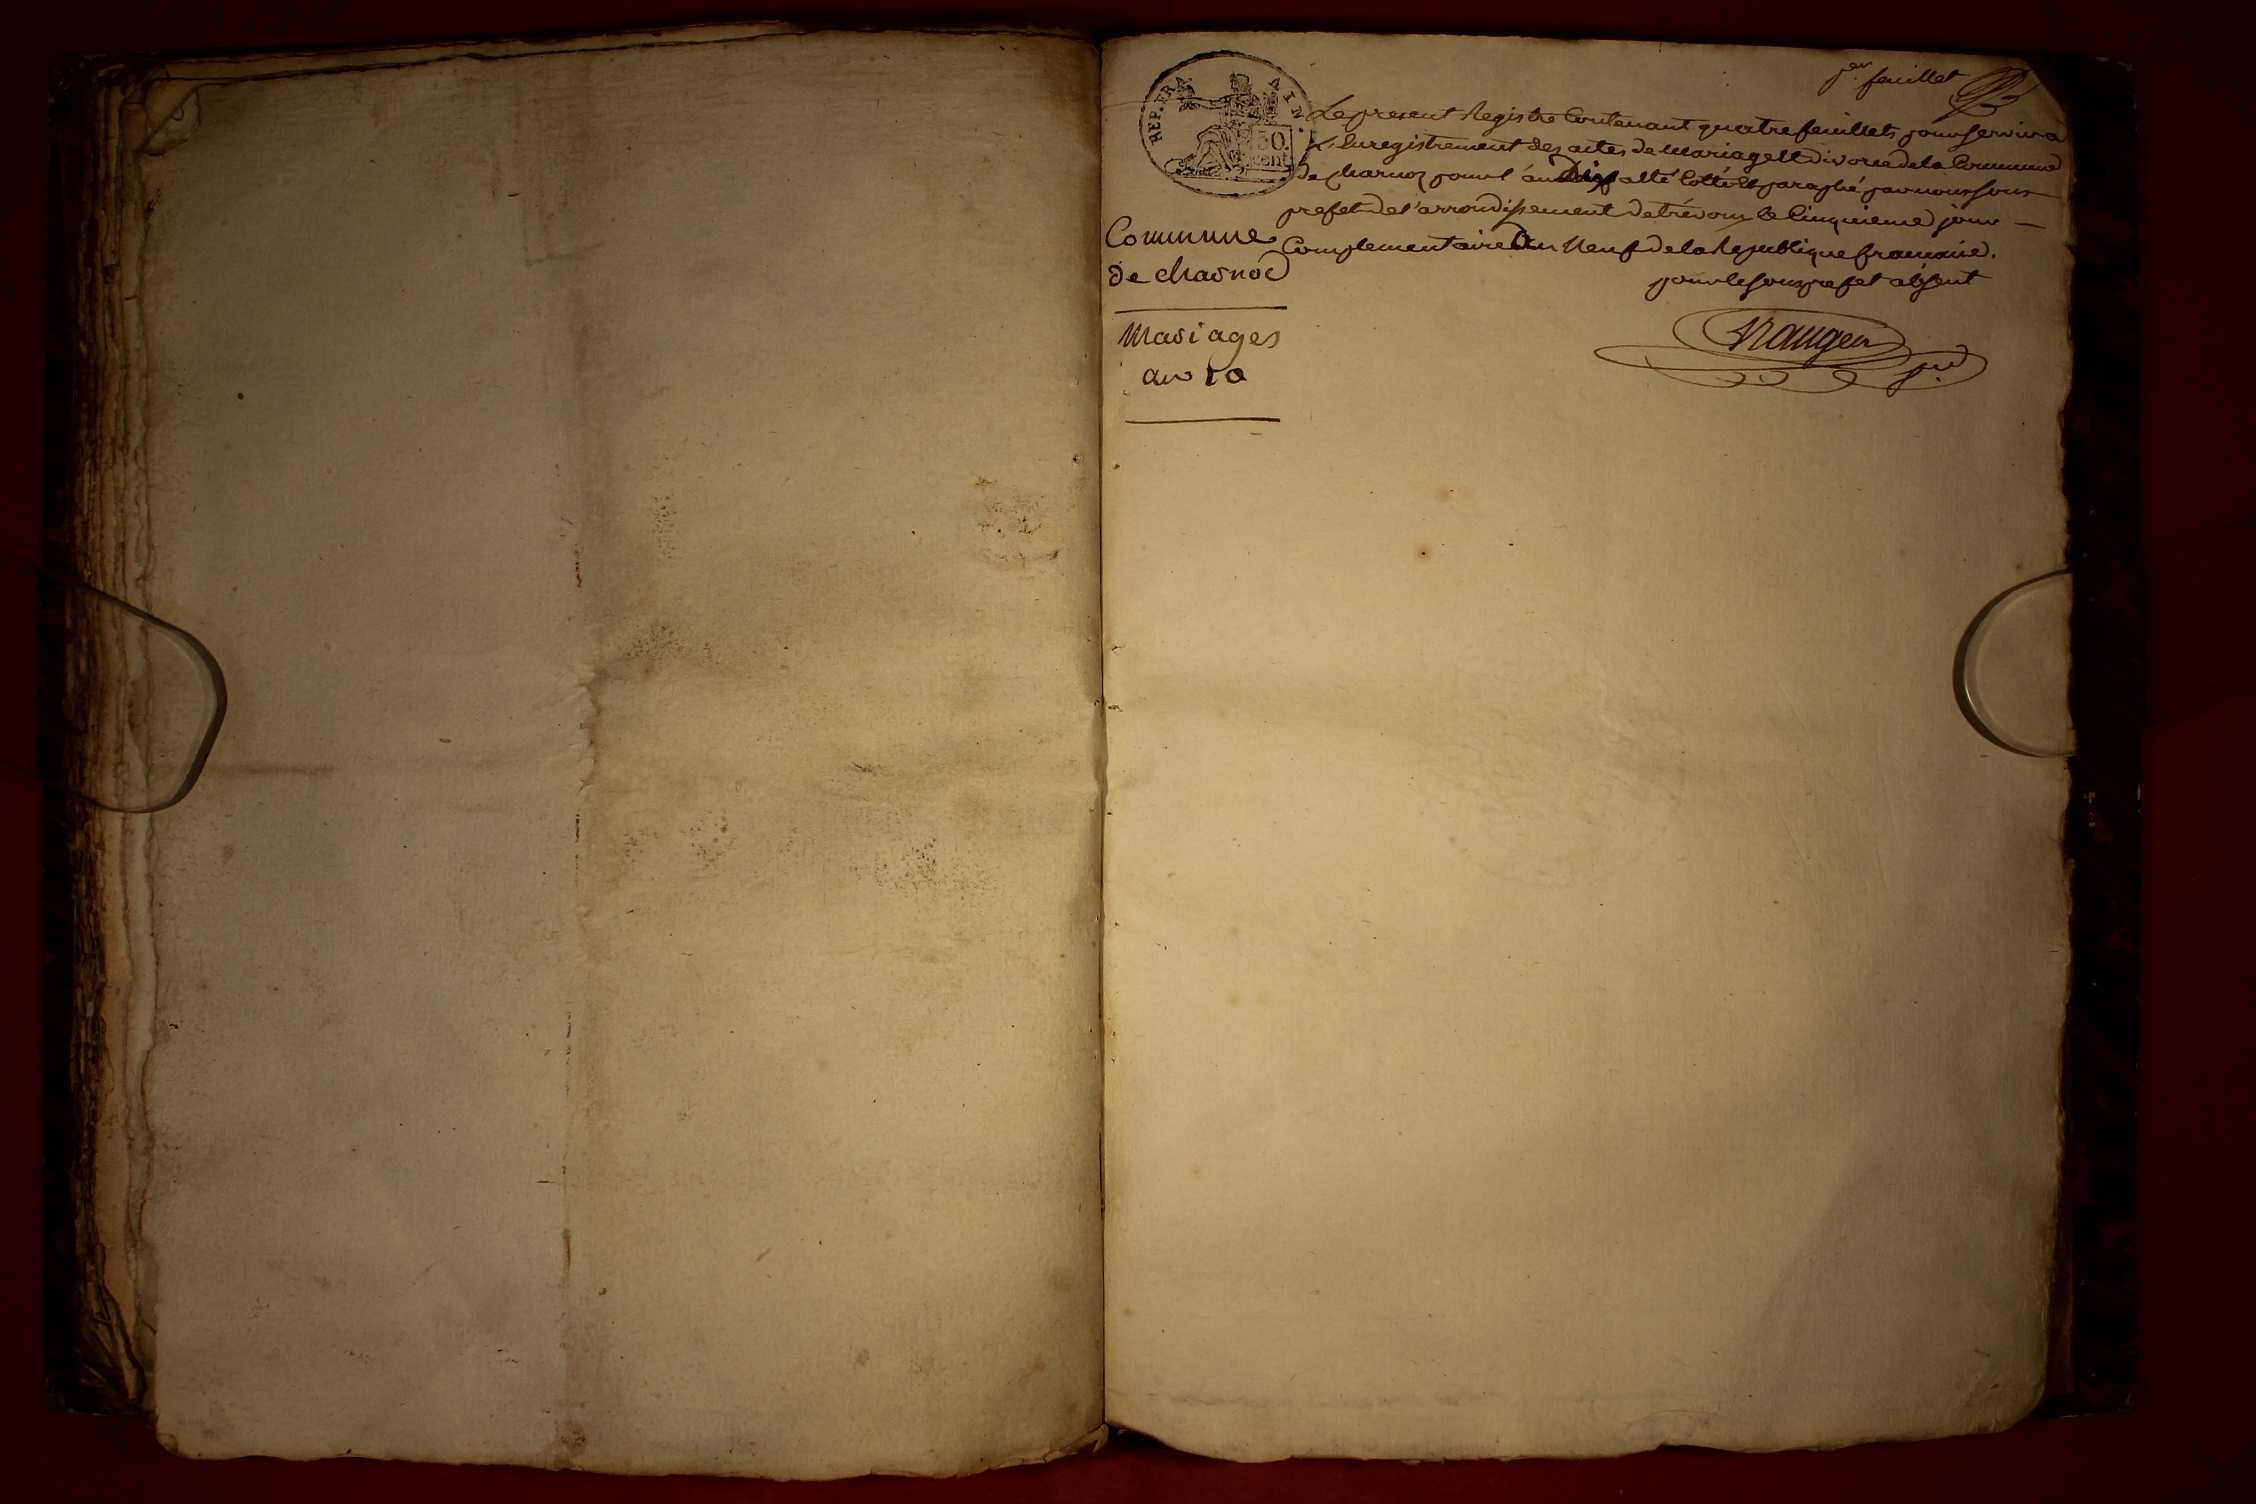 1er feuillet
REP. FRA AIN.
50. cent
Le present Registre Contenant quatre feuillets pour servir a
L'Enregistrement des actes de Mariage et divorce de la Commune
de Charnoz pour l'an Dix a été Cotté et paraphé par nous sous
prefet de l'arrondissement de trévoux le Cinquieme jour
Complementaire an Neuf de la Republique francaise.
pour le sous prefet absent
Commune
de charnoz
Mariages
an 10